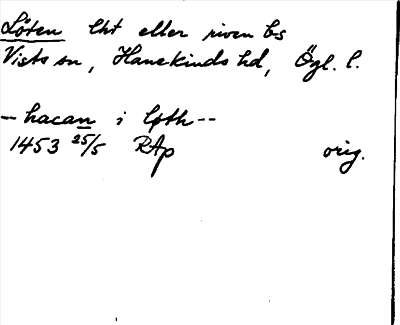 Löten Ekt eller riven bs
Vists sn, Hanekinds hd, Ögl. l.
-- hacan i løth --
1453 25/5 RAp orig.